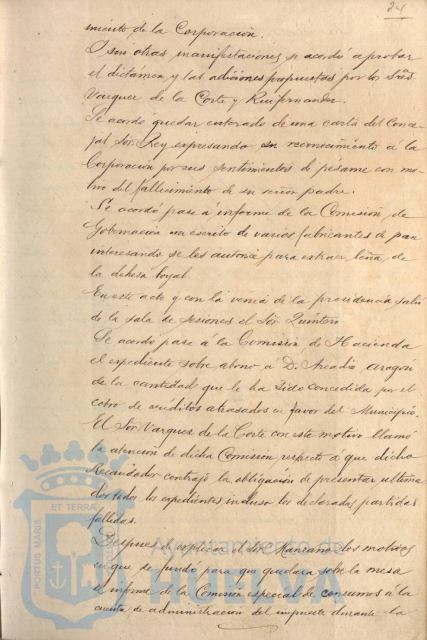 24
miento de la Corporación.
Y sin otras manifestaciones se acordó aprobar
el dictámen y las adiciones propuestas por los Sres
Vazquez de la Corte y Ruifernandez.
Se acordó quedar enterado de una carta del Conce-
jal Sor. Rey expresando su reconocimiento á la
Corporación por sus sentimientos de pésame con mo-
tivo del fallecimiento de su señor padre.
Se acordó pase á informe de la Comisión de
Gobernación un escrito de varios fabricantes de pan
interesando se les autorice para extraer leña de
la dehesa boyal.
En este acto y con la venia de la presidencia salió
de la sala de sesiones el Sor. Quintero
Se acordó pase a la Comisión de Hacienda
el expediente sobre abono á D. Arcadio Aragón
de la cantidad que le ha sido concedida por el
cobro de créditos atrasados en favor del Municipio.
El Sor. Vazquez de la Corte con este motivo llamó
la atención de dicha Comisión respecto á que dicho
Recaudador contrajo la obligación de presentar ultima
dos todos los expedientes incluso los declarados partidas
fallidas.
Despues de explicar el Sor. Manzano los motivos
en que se fundó para que quedara sobre la mesa
el informe de la Comisión especial de consumos á la
cuenta de administración del impuesto durante la
PORTUS MARIS ET TERRAE
Ayuntamiento de
HUELVA